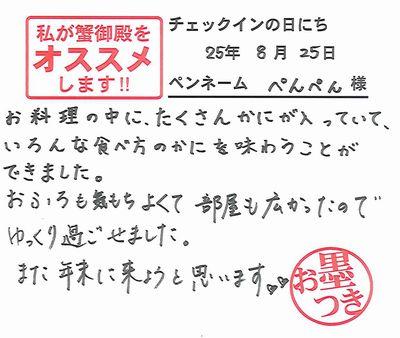 私が蟹御殿を
オススメ
します!!
チェックインの日にち
25年 8月 25日
ペンネーム ぺんぺん 様
お料理の中に、たくさんかにが入っていて、
いろんな食べ方のかにを味わうことが
できました。
おふろも気もちよくて 部屋も広かったので
ゆっくり過ごせました。
また年末に来ようと思います。
お墨
つき